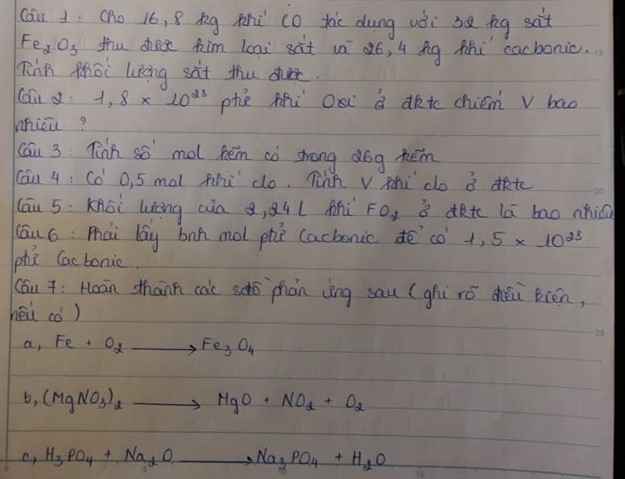 Câu 1: Cho 16,8 kg khí CO tác dụng với 32 kg sắt
Fe₂O₃ thu được kim loại sắt và 26,4 kg khí cacbonic...
Tính khối lượng sắt thu được.
Câu 2: 1,8 × 10²³ phtử khí Oxi ở đktc chiếm V bao
nhiêu ?
Câu 3: Tính số mol kẽm có trong 26g kẽm
Câu 4: Có 0,5 mol khí clo. Tính V khí clo ở đktc
Câu 5: Khối lượng của 2,24 l khí FO₂ ở đktc là bao nhiêu
Câu 6: Phải lấy bnh mol phtử Cacbonic để có 1,5 × 10²³
phtử Cacbonic.
Câu 7: Hoàn thành các sơ đồ phản ứng sau (ghi rõ điều kiện,
nếu có)
a, Fe + O₂ ⟶ Fe₃O₄
b, (MgNO₃)₂ ⟶ MgO + NO₂ + O₂
c, H₃PO₄ + Na₂O ⟶ Na₃PO₄ + H₂O